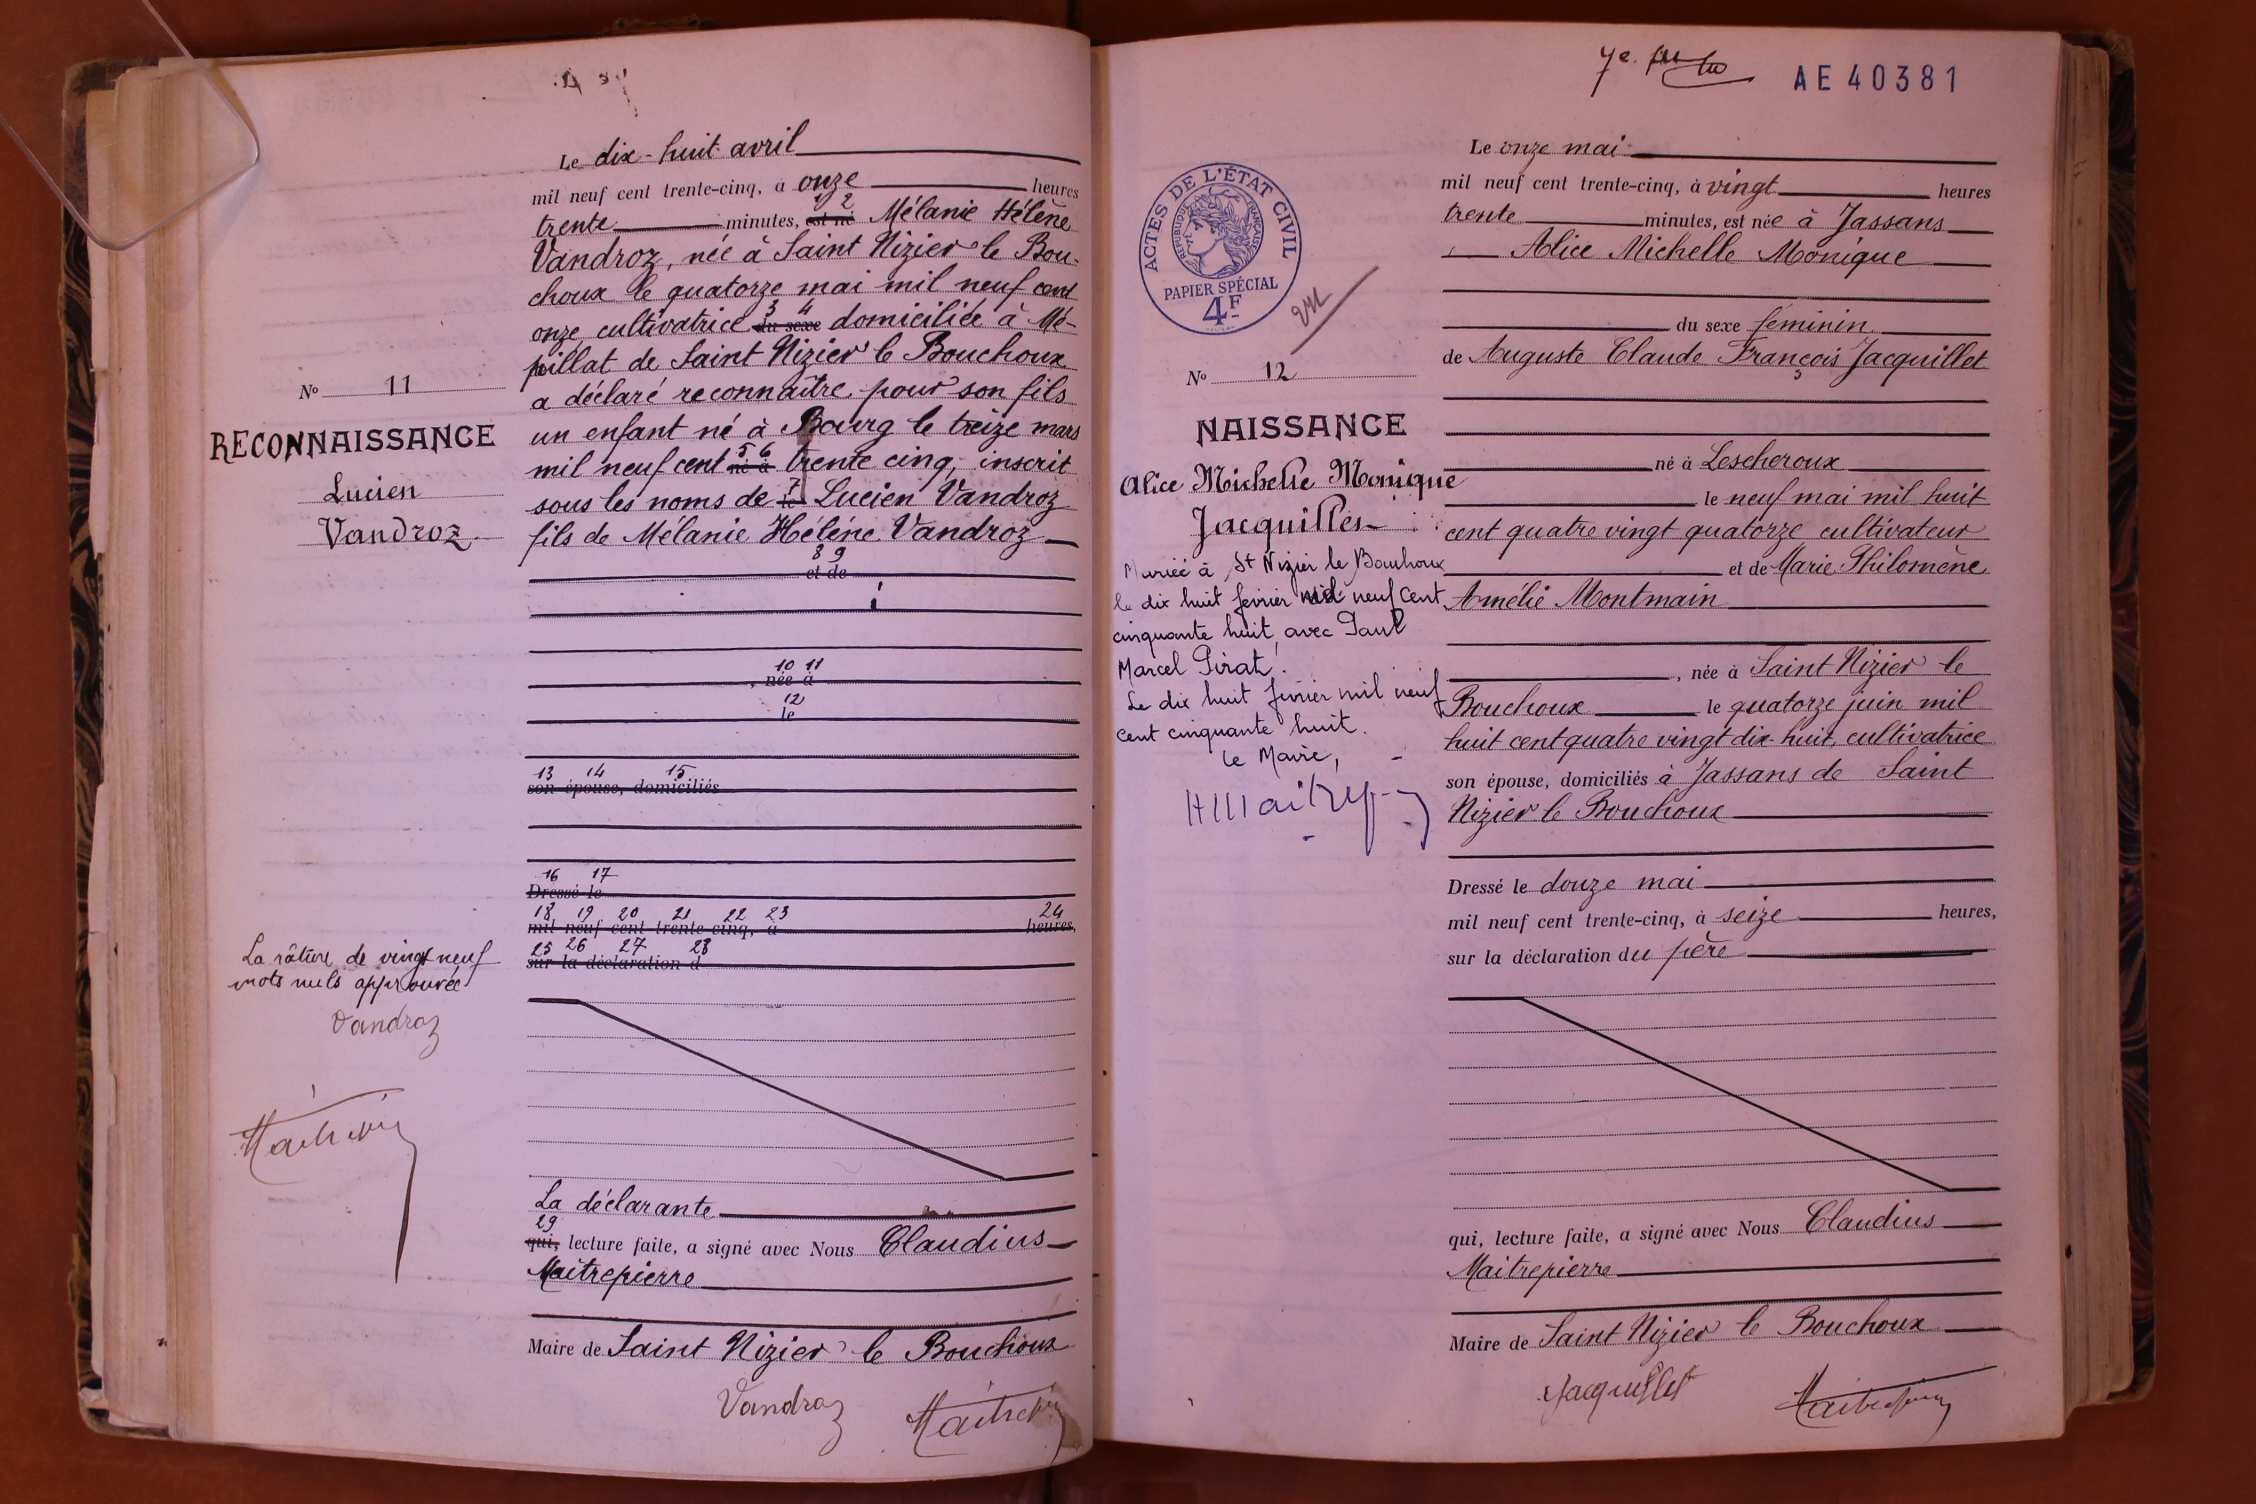 Le dix-huit avril
mil neuf cent trente-cinq, à onze heures
1 2
trente minutes, est né Mélanie Hélène
Vandroz, née à Saint Nizier le Bou-
choux le quatorze mai mil neuf cent
3 4
onze, cultivatrice du sexe domiciliée à Mé-
pillat de Saint Nizier le Bouchoux
a déclaré reconnaître pour son fils
un enfant né à Bourg le treize mars
5 6
mil neuf cent né à trente cinq, inscrit
7
sous les noms de le Lucien Vandroz
fils de Mélanie Hélène Vandroz
8 9
et de
10 11
, née à
12
le
13 14 15
son épouse, domiciliés
16 17
Dressé le
18 19 20 21 22 23 24
mil neuf cent trente-cinq, à heures,
25 26 27 28
sur la déclaration d
La déclarante
29
qui, lecture faite, a signé avec Nous Claudius
Maitrepierre
Maire de Saint Nizier le Bouchoux
Vandroz
No 11
RECONNAISSANCE
Lucien
Vandroz
La râture de vingt neuf
mots nuls approuvée
Vandroz
7e.
AE 40381
ACTES DE L'ÉTAT CIVIL
RÉPUBLIQUE FRANÇAISE
PAPIER SPÉCIAL
4F
vu
No 12
NAISSANCE
Alice Michelle Monique
Jacquillet
Mariée à St Nizier le Bouchoux
le dix huit fevrier mil neuf cent
cinquante huit, avec Paul
Marcel Pirat.
Le dix huit fevrier mil neuf
cent cinquante huit.
Le Maire,
HMaitrep
Le onze mai
mil neuf cent trente-cinq, à vingt heures
trente minutes, est née à Jassans
Alice Michelle Monique
du sexe féminin
de Auguste Claude François Jacquillet
né à Lescheroux
le neuf mai mil huit
cent quatre vingt quatorze cultivateur
et de Marie Philomène
Amélie Montmain
, née à Saint Nizier le
Bouchoux le quatorze juin mil
huit cent quatre vingt dix-huit, cultivatrice
son épouse, domiciliés à Jassans de Saint
Nizier le Bouchoux
Dressé le douze mai
mil neuf cent trente-cinq, à seize heures,
sur la déclaration du père
qui, lecture faite, a signé avec Nous Claudius
Maitrepierre
Maire de Saint Nizier le Bouchoux
Jacquillet